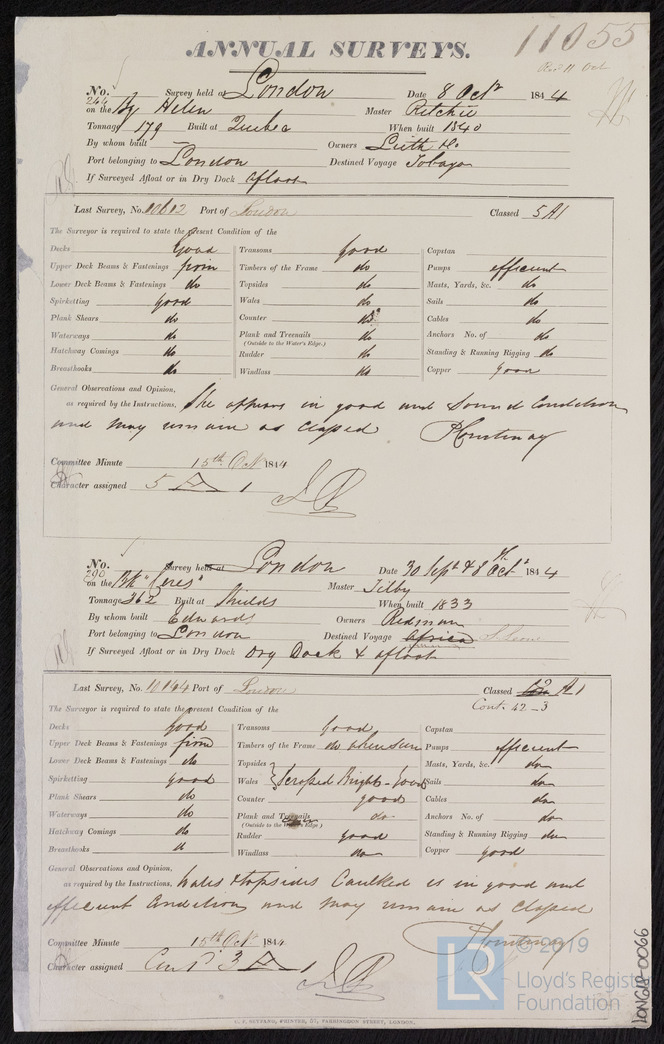 ANNUAL SURVEYS.
11055
Recd 11 Oct
No. 244 Survey held at London Date 8 Octr 1844
on the Bg Helen Master Ritchie
Tonnage 179 Built at Quebec When built 1840
By whom built — Owners Lieth &Co.
Port belonging to London Destined Voyage Tobago
If Surveyed Afloat or in Dry Dock afloat
Last Survey, No. 10612 Port of London Classed 5 A1
The Surveyor is required to state the present Condition of the
Decks Good Transoms good Capstan
Upper Deck Beams & Fastenings firm Timbers of the Frame do Pumps efficient
Lower Deck Beams & Fastenings do Topsides do Masts, Yards, &c. do
Spirketting good Wales do Sails do
Plank Shears do Counter do Cables do
Waterways do Plank and Treenails do Anchors No. of do
(Outside to the Water's Edge.)
Hatchway Comings do Rudder do Standing & Running Rigging do
Breasthooks do Windlass do Copper good
General Observations and Opinion,
as required by the Instructions, She appears in good and Sound Condition
and may remain as classed P Courtenay
Committee Minute 15th Oct 1844
Character assigned 5 A 1
No. 290 Survey held at London Date 30 Sept & 8th Octr 1844
on the Bk "Ceres" Master Tilby
Tonnage 262 Built at Shields When built 1833
By whom built Edwards Owners Redman
Port belonging to London Destined Voyage Africa S Leone
If Surveyed Afloat or in Dry Dock Dry Dock & afloat
Last Survey, No. 10144 Port of London Classed 12 A1
Cont. 42-3
The Surveyor is required to state the present Condition of the
Decks Good Transoms Good Capstan
Upper Deck Beams & Fastenings firm Timbers of the Frame do where seen Pumps efficient
Lower Deck Beams & Fastenings do Topsides Masts, Yards, &c. do
Spirketting good Wales Scraped Bright - Good Sails do
Plank Shears do Counter good Cables do
Waterways do Plank and Treenails do Anchors No. of do
(Outside to the Water's Edge.)
Hatchway Comings do Rudder good Standing & Running Rigging do
Breasthooks d Windlass do Copper good
General Observations and Opinion,
as required by the Instructions, Wales & topsides Caulked is in good and
efficient condition and may remain as classed
P Courtenay
Committee Minute 15th Oct 1844
Character assigned Contd 3 A 1
© 2019
LR Lloyd's Register
Foundation
LON618-0066